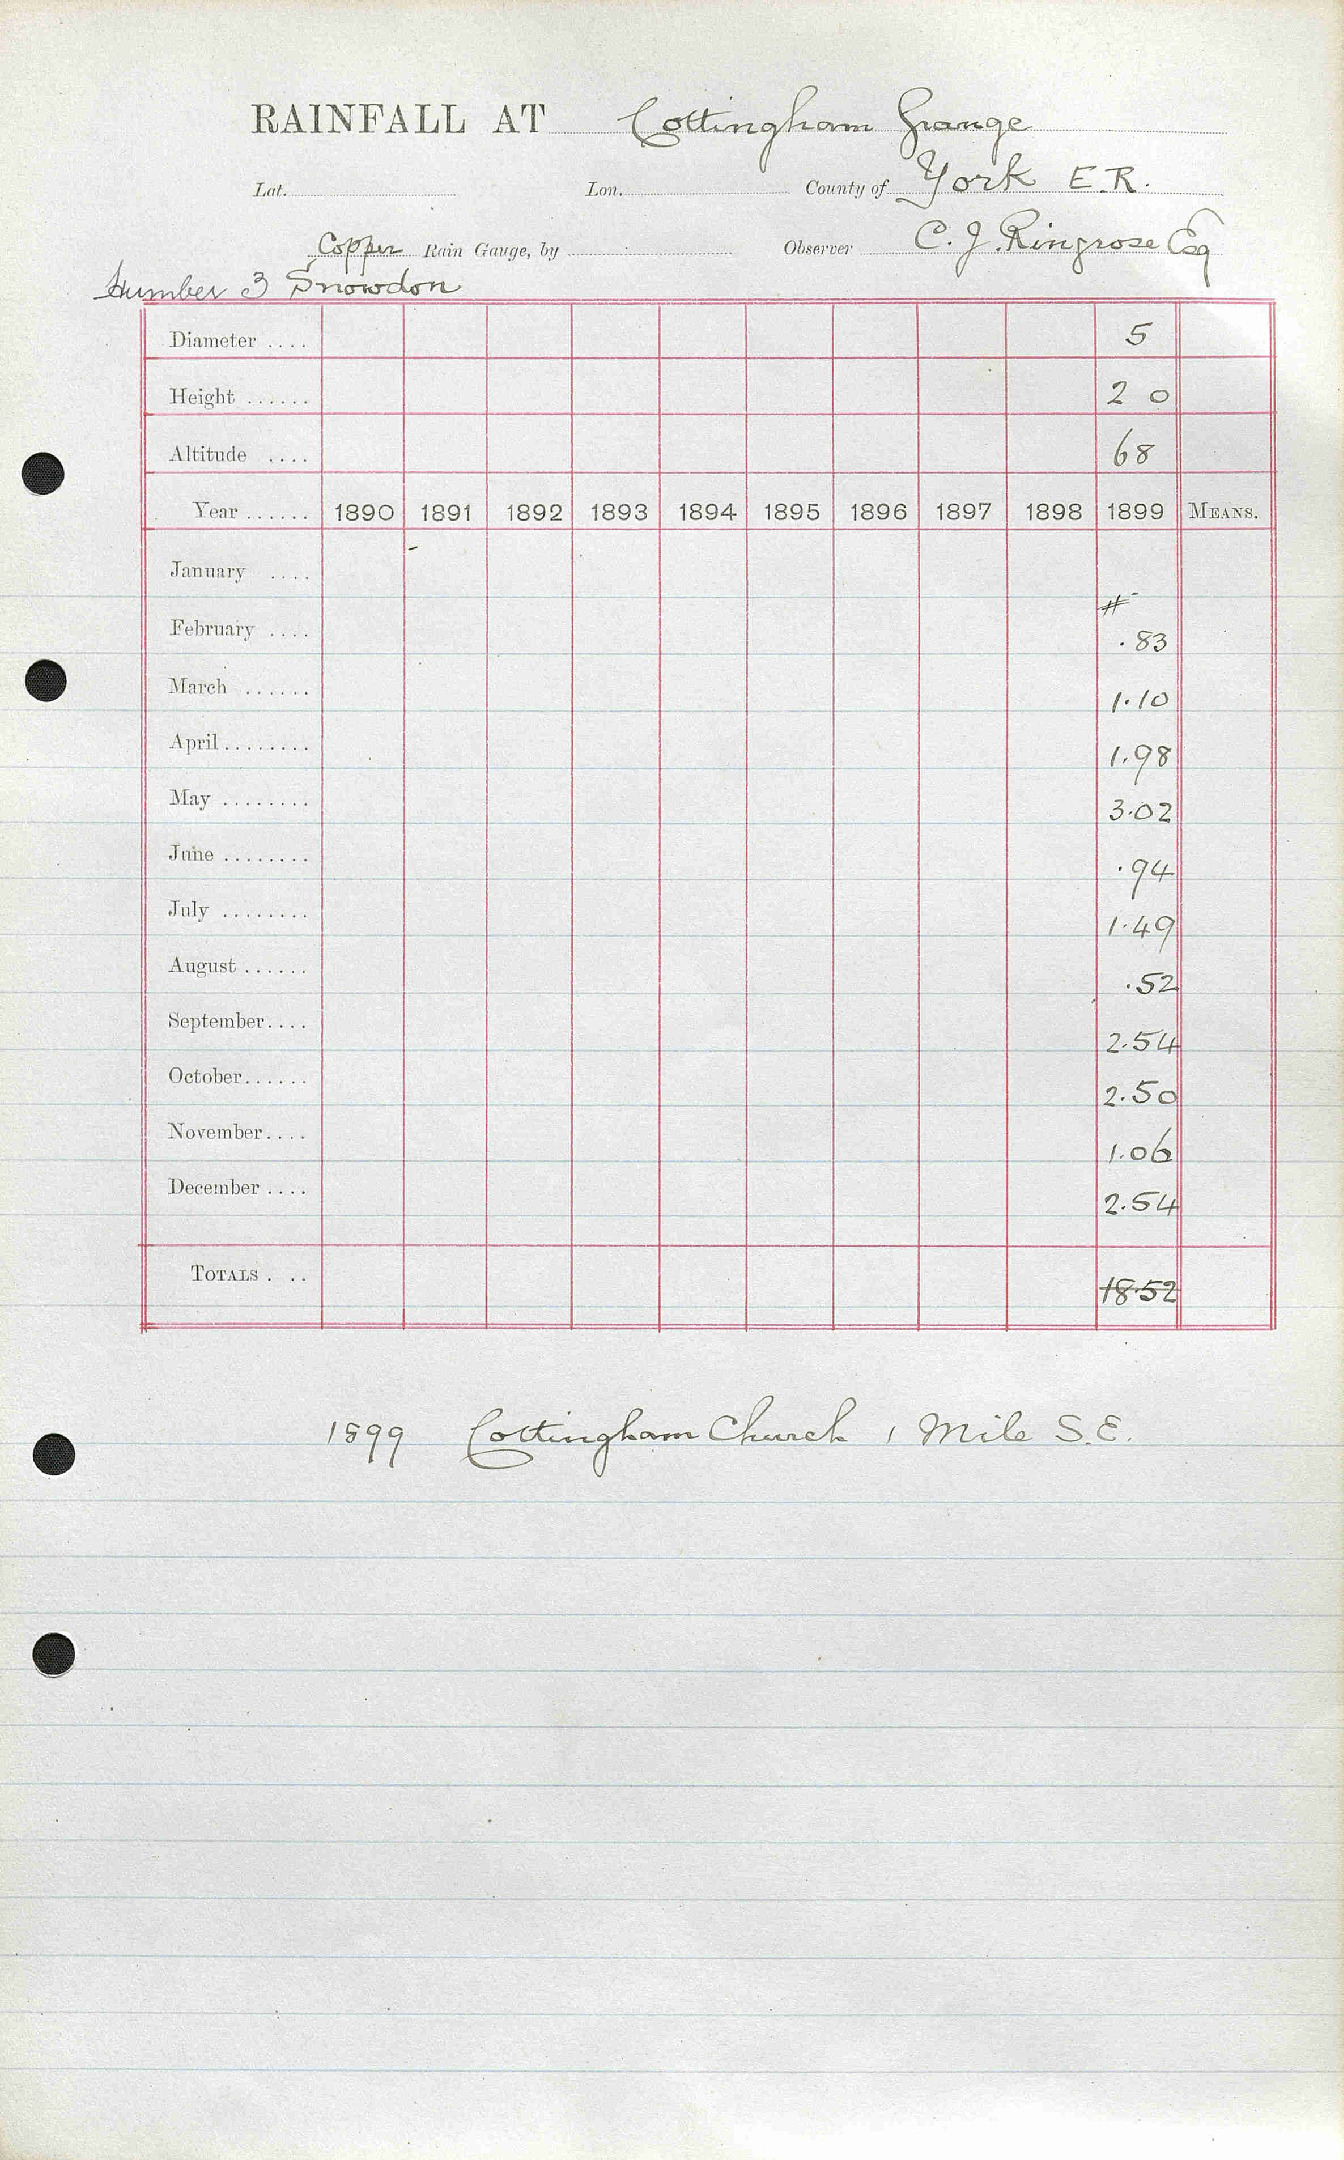 RAINFALL AT Cottingham Grange
Lat. Lon. County of York E.R.
Copper Rain Gauge, by Observer C. J. Ringrose Esq
Number 3 Snowdon
Diameter .... 5
Height ...... 2 0
Altitude .... 68
Year ...... 1890 1891 1892 1893 1894 1895 1896 1897 1898 1899 MEANS.
January ....
#
February .... .83
March ...... 1.10
April ........ 1.98
May ........ 3.02
June ........ .94
July ........ 1.49
August ...... .52
September.... 2.54
October...... 2.50
November.... 1.06
December .... 2.54
TOTALS . .. 18.52
1899 Cottingham Church 1 Mile S.E.